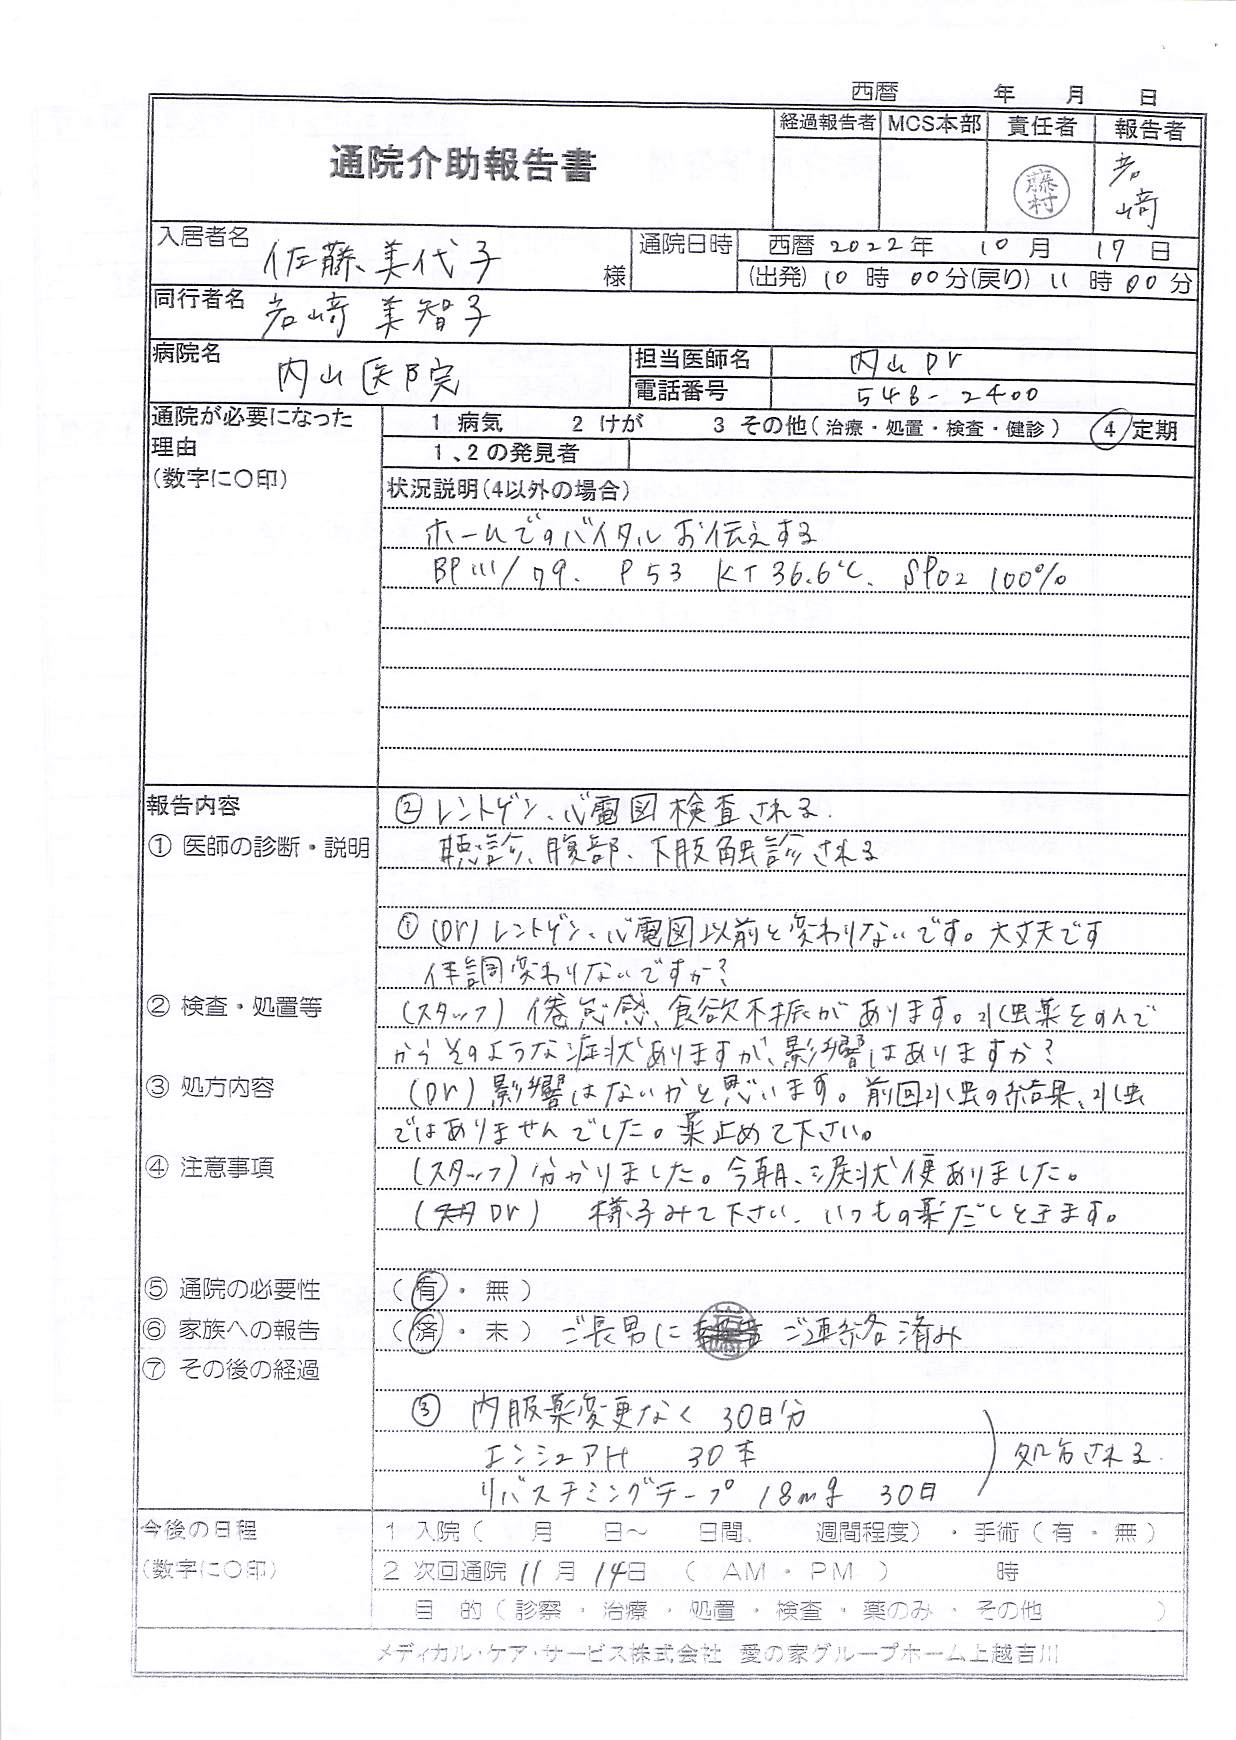 西暦　　年　　月　　日
通院介助報告書
経過報告者 MCS本部 責任者 報告者
藤村 岩﨑
入居者名 佐藤 美代子 様
通院日時 西暦 2022年 10月 17日
(出発) 10時 00分(戻り) 11時 00分
同行者名 岩﨑 美智子
病院名 内山医院
担当医師名 内山Dr
電話番号 548-2400
通院が必要になった理由
(数字に○印)
1 病気　2 けが　3 その他(治療・処置・検査・健診)　④定期
1、2の発見者
状況説明(4以外の場合)
ホームでのバイタルお伝えする
BP 111/79. P53 KT36.6℃. SPO2 100%
報告内容
① 医師の診断・説明
② 検査・処置等
③ 処方内容
④ 注意事項
② レントゲン、心電図検査される.
聴診、腹部、下肢触診される
① (Dr) レントゲン、心電図以前と変わりないです。大丈夫です
体調変わりないですか?
(スタッフ) 倦怠感、食欲不振があります。水虫薬をのんで
からそのような症状ありますが、影響はありますか?
(Dr) 影響はないかと思います。前回水虫の結果、水虫
ではありませんでした。薬止めて下さい。
(スタッフ) 分かりました。今朝、泥状便ありました。
(Dr) 様子みて下さい、いつもの薬だしときます。
⑤ 通院の必要性 (有・無)
⑥ 家族への報告 (済・未) ご長男に ご連絡済み
⑦ その後の経過
③ 内服薬変更なく 30日分
エンシュアH 30本
リバスチミングテープ 18mg 30日
処方される.
今後の日程
(数字に○印)
1 入院(　月　日～　日間、　週間程度)・手術(有・無)
2 次回通院 11月 14日 (AM・PM)　時
目 的(診察・治療・処置・検査・薬のみ・その他　)
メディカル・ケア・サービス株式会社 愛の家グループホーム上越吉川